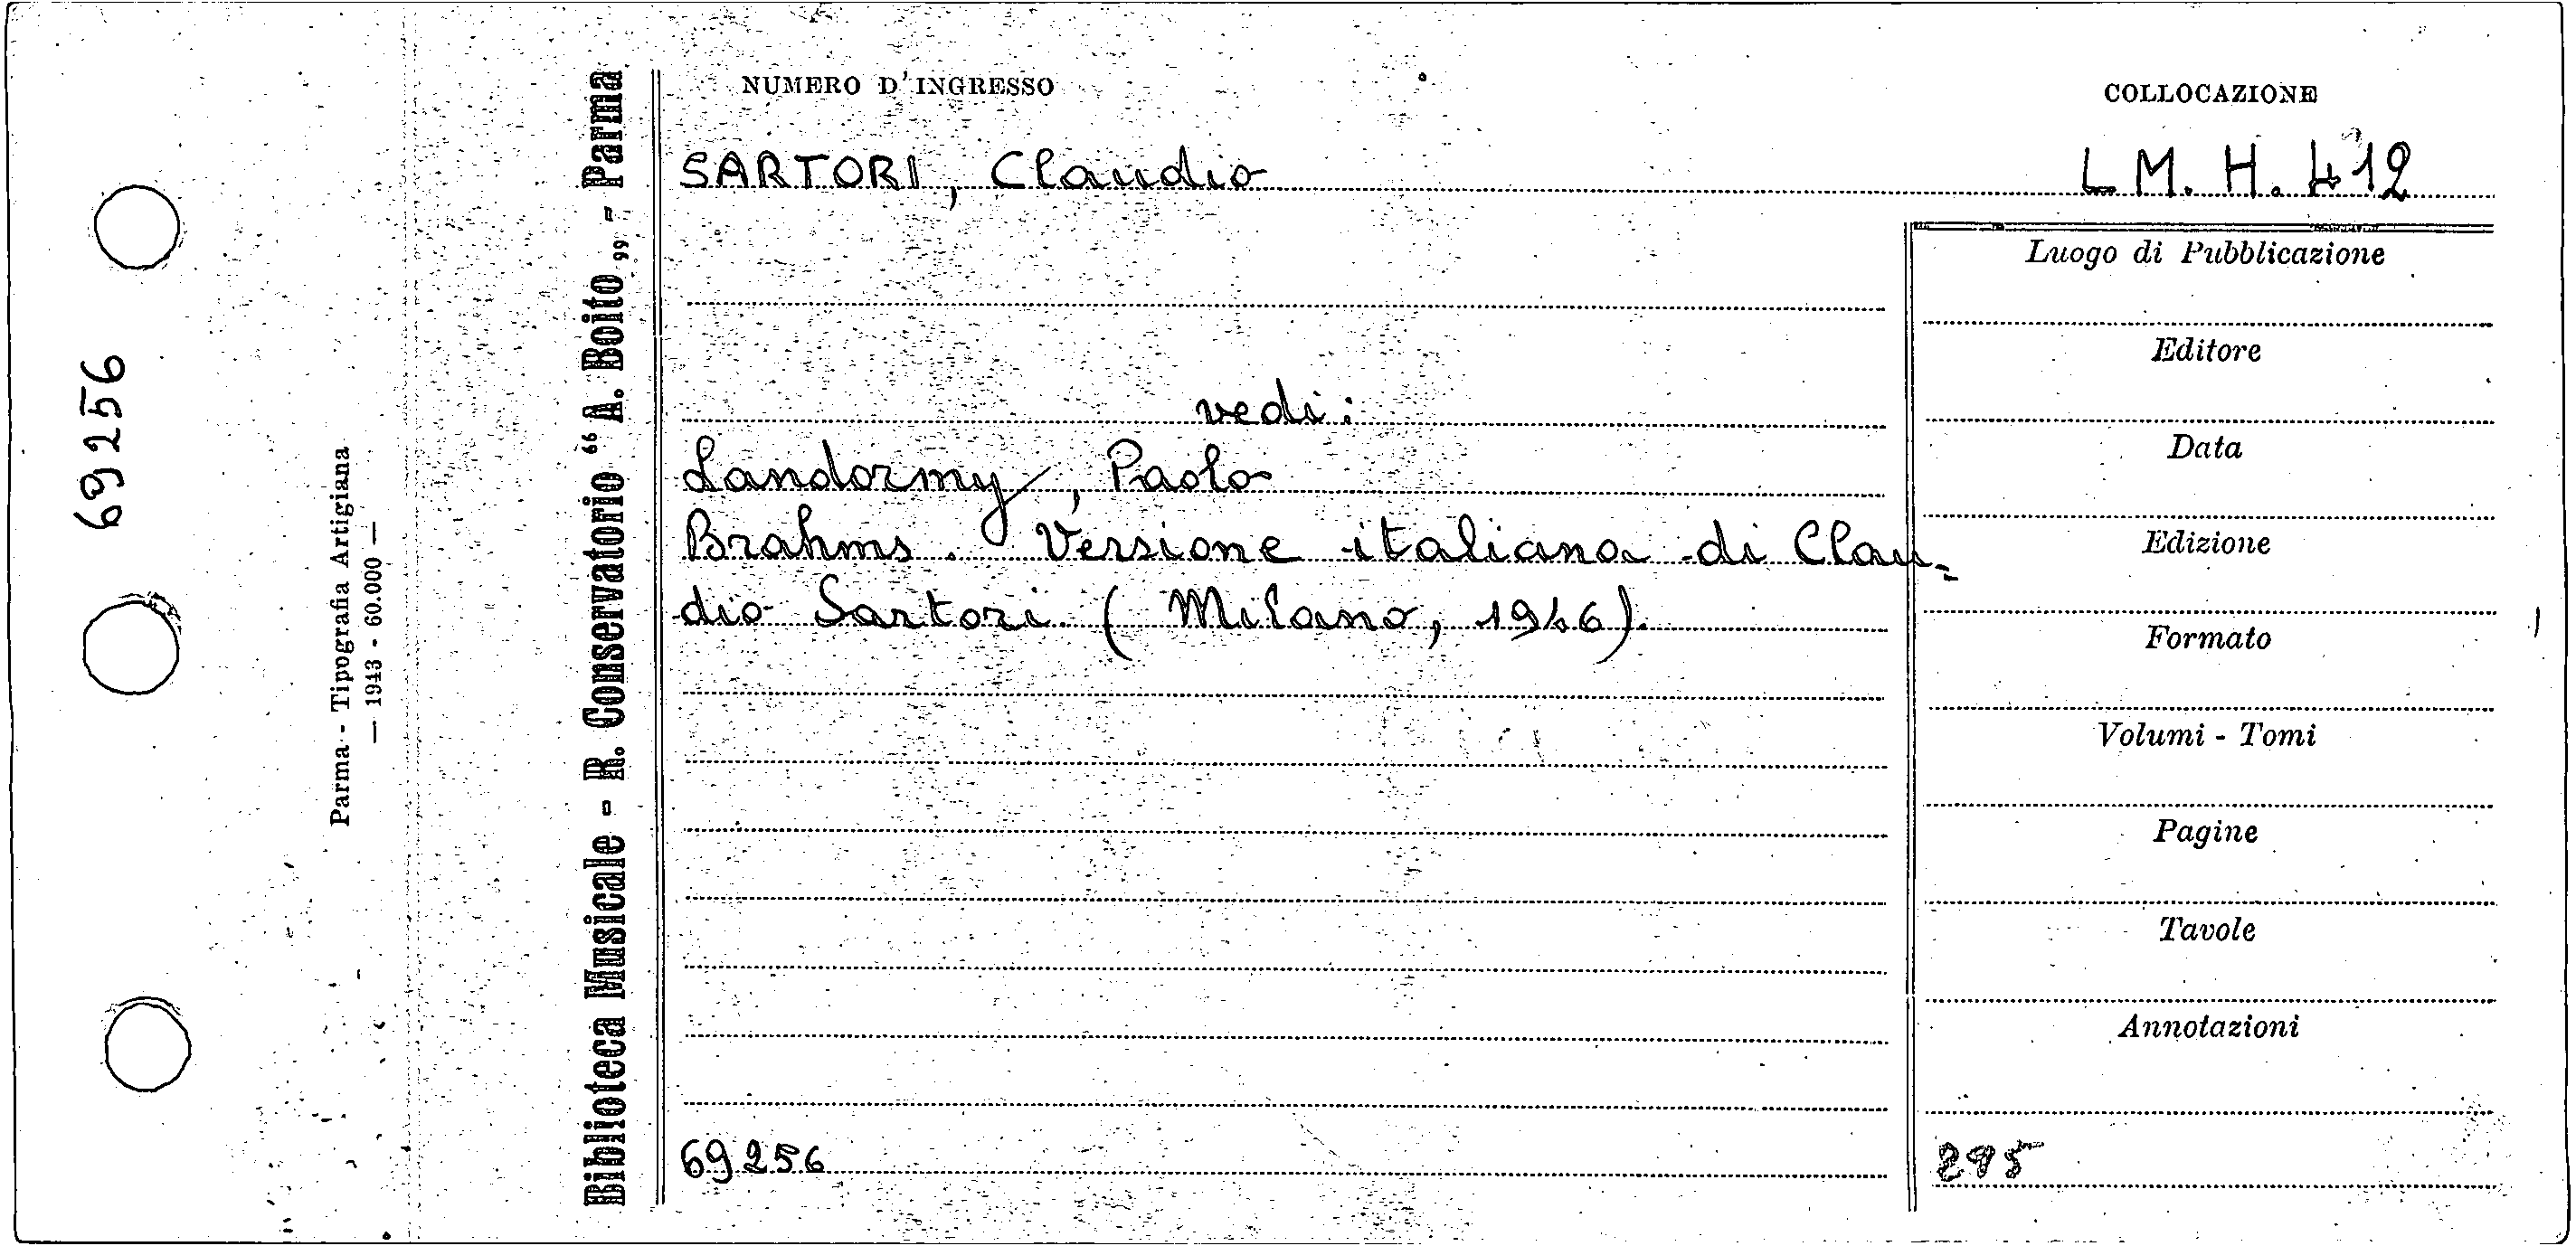 69256
Parma - Tipografia Artigiana
— 1943 - 60.000 —
Biblioteca Musicale - R. Conservatorio “ A. Boito „ - Parma
NUMERO D'INGRESSO
COLLOCAZIONE
SARTORI, Claudio
L M. H. 412
vedi:
Landormy, Paolo
Brahms. Versione italiana di Clau=
dio Sartori (Milano, 1946).
69256
Luogo di Pubblicazione
Editore
Data
Edizione
Formato
Volumi - Tomi
Pagine
Tavole
Annotazioni
295